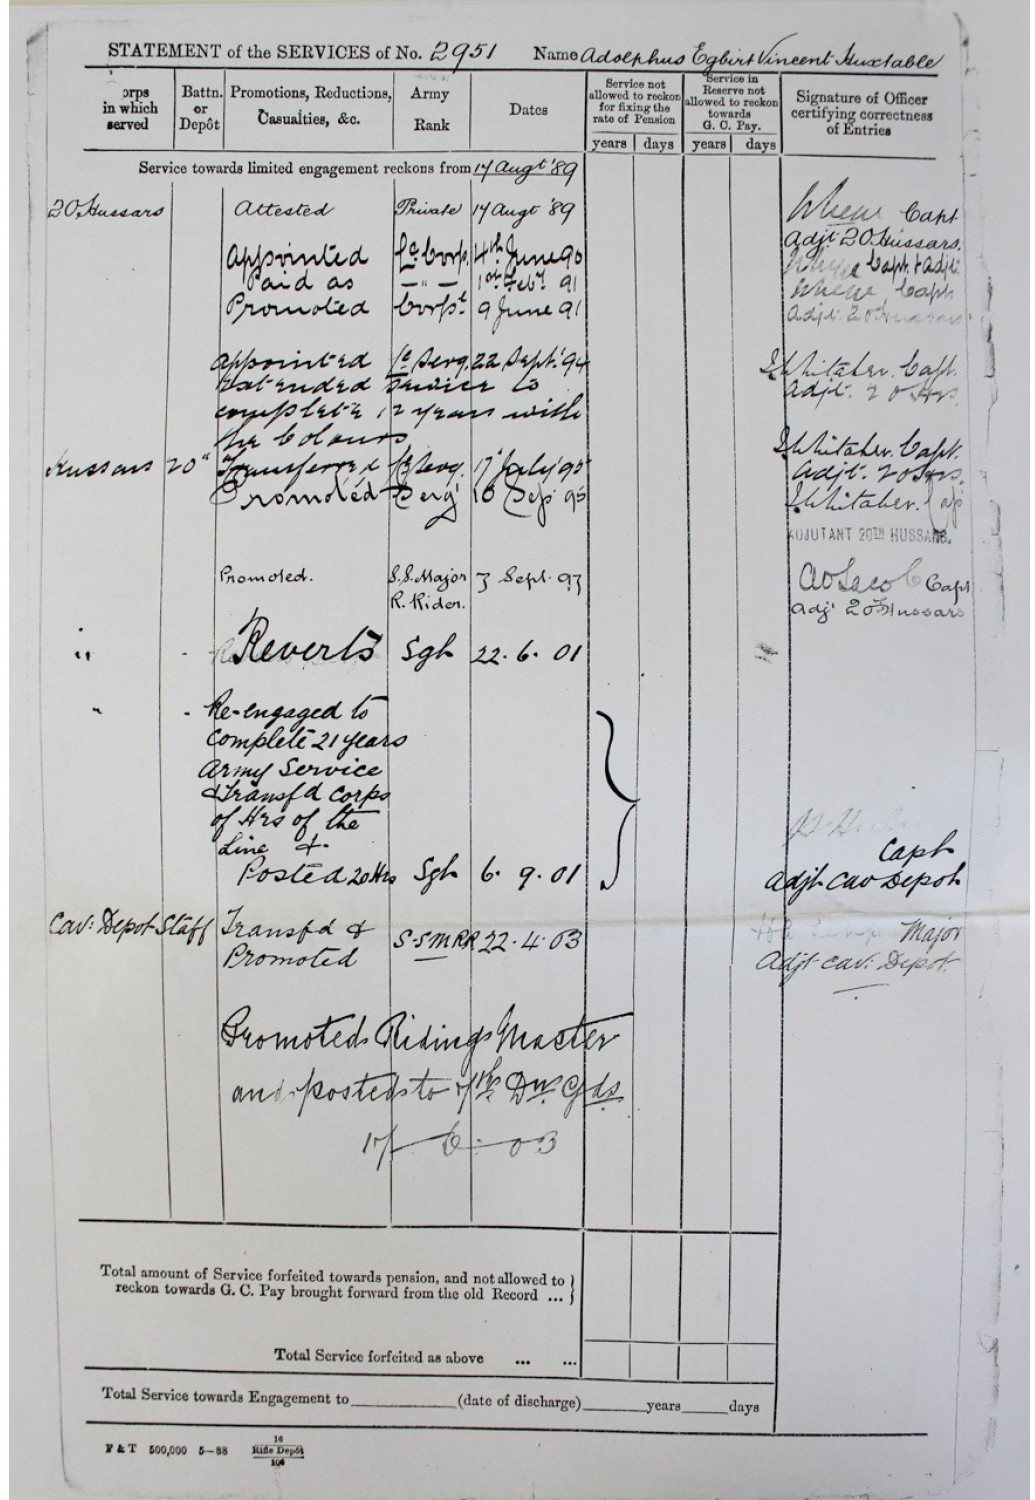 STATEMENT of the SERVICES of No. 2951 Name Adolphus Egbirt Vincent Huxtable
orps in which served
Battn. or Depôt
Promotions, Reductions, Casualties, &c.
Army Rank
Dates
Service not allowed to reckon for fixing the rate of Pension
Service in Reserve not allowed to reckon towards G. C. Pay.
Signature of Officer certifying correctness of Entries
years days years days
Service towards limited engagement reckons from 17 Augt '89
20 Hussars Attested Private 17 Augt '89 Capt
Adjt 20 Hussars.
Appointed Lce Corp. 4th June 90 Capt & Adjt.
Paid as — " — 1st Feby 91 Capt
Promoted Corpl 9 June 91 Adjt. 20 Hussars
Appointed Lce Serg. 22 Sept. '94 Whitaker. Capt.
Extended Service to Adjt. 20 Hrs.
complete 12 years with
the Colours Whitaker. Capt.
Hussars 20" Transferred Lce Serg. 17 July '95 Adjt. 20 Hrs.
Promoted Serg 10 Sep 95 Whitaker. Cap
ADJUTANT 20TH HUSSARS.
Promoted. S.S. Major 7 Sept. 97 Capt
R. Rider. Adjt 20 Hussars
" Reverts Sgt 22. 6. 01
" Re-engaged to
complete 21 years
Army Service
& Transfd Corps
of Hrs of the
Line &
Capt
Posted 20 Hrs Sgt 6. 9. 01 Adjt Cav Depot
Cav: Depot Staff Transfd & S.S.M.R.R 22. 4. 03 Major
Promoted Adjt Cav: Depot.
Promoted Riding Master
and posted to 7th Dn. Gds.
17 — 6 — 03
Total amount of Service forfeited towards pension, and not allowed to
reckon towards G. C. Pay brought forward from the old Record ...
Total Service forfeited as above ... ...
Total Service towards Engagement to (date of discharge) years days
F & T 500,000 5—88 16
Rifle Depôt
106